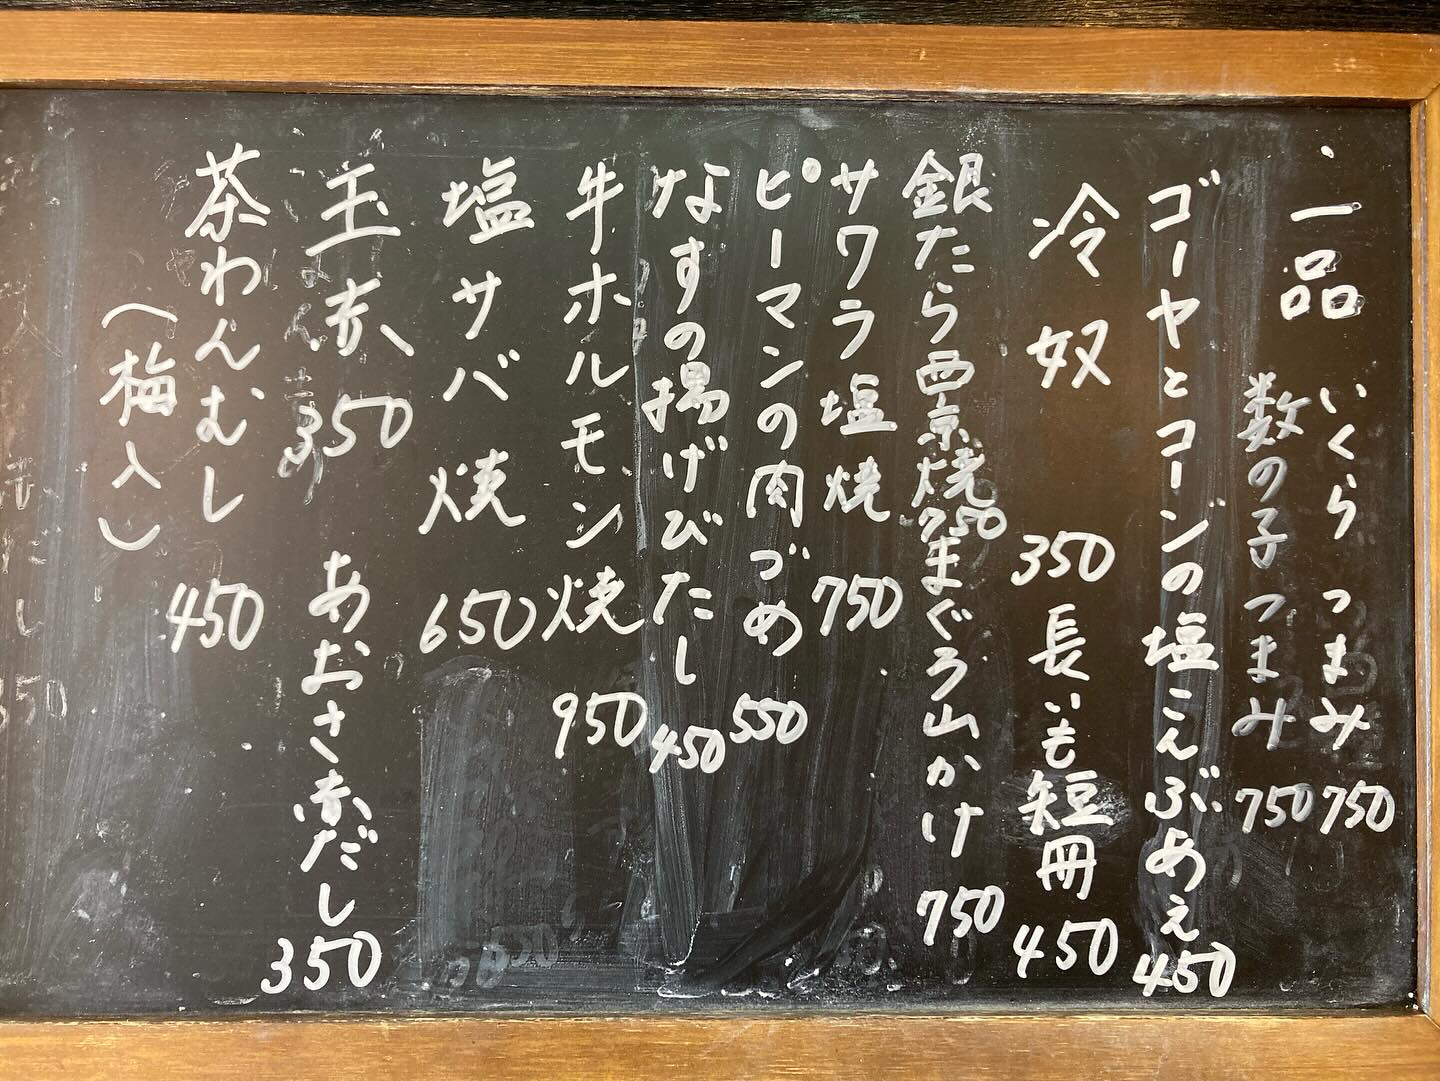 一品
いくらつまみ 750
数の子つまみ 750
ゴーヤとコーンの塩こんぶあえ 450
冷奴 350
長いも短冊 450
銀たら西京焼 750
まぐろ山かけ 750
サワラ塩焼 750
ピーマンの肉づめ 550
なすの揚げびたし 450
牛ホルモン焼 950
塩サバ焼 650
玉赤 350
あおさ赤だし 350
茶わんむし 450
(梅入)